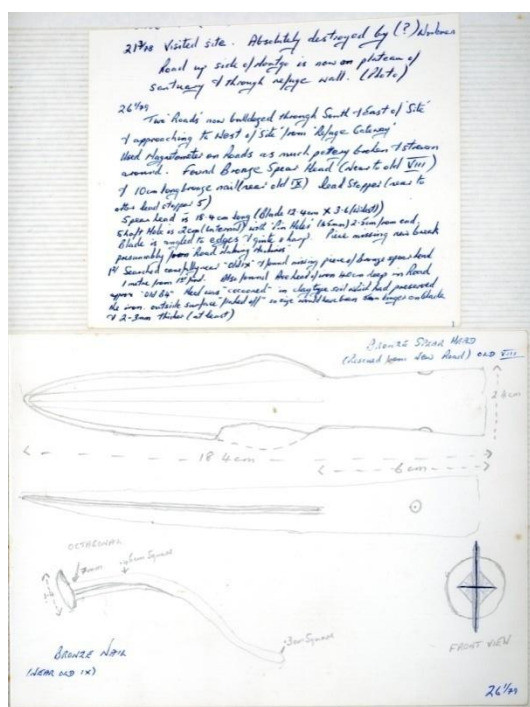 21 3/78 Visited site. Absolutely destroyed by (?)
Road up side of is now on plateau of
sanctuary & through refuge wall. (Photo)
26 1/79
Two 'Roads' now bulldozed through South & East of 'Site'
& approaching to West of Site from 'Refuge Gateway'
Used Magnetometer on Roads as much pottery broken & strewn
around. Found Bronze Spear Head (near to old VIII)
& 10cm long bronze nail (near old IX) Lead Stopper (near to
other lead stopper 5)
Spear head is 18.4 cm long (Blade 12.4cm X 3.6 (widest))
Shaft Hole is 2cm (internal) with 'Pin Holes' 2.5cm from end.
Blade is angled to edges & quite sharp. Piece missing new break
presumably from Road making
Searched carefully near & found missing piece of bronze spear head
1 metre from 1st find. Also found head of iron deep in Road
"Old B4" Head was "cocooned" in clay type soil which had preserved
the iron. outside surface "flaked off" so size would have been longer on blade
& 2-3mm thicker (at least)
BRONZE SPEAR HEAD
(Rescued from New Road) OLD VIII
2.4cm
18.4cm
6cm
OCTAGONAL
Square
Square
BRONZE NAIL
(NEAR OLD IX)
FRONT VIEW
26 1/79